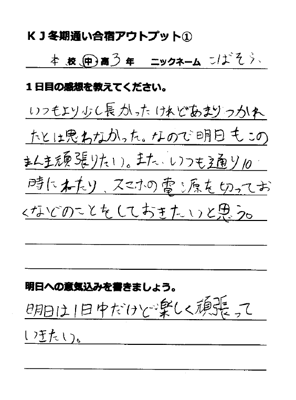 KJ冬期通い合宿アウトプット①
本校 中・高 3年 ニックネーム こばそう
1日目の感想を教えてください。
いつもより少し長かったけれどあまりつかれ
たとは思わなかった。なので明日もこの
まんま頑張りたい。また、いつも通り10
時にねたり、スマホの電源を切ってお
くなどのことをしておきたいと思う。
明日への意気込みを書きましょう。
明日は1日中だけど楽しく頑張って
いきたい。